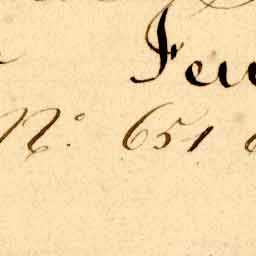 Feu
No. 651